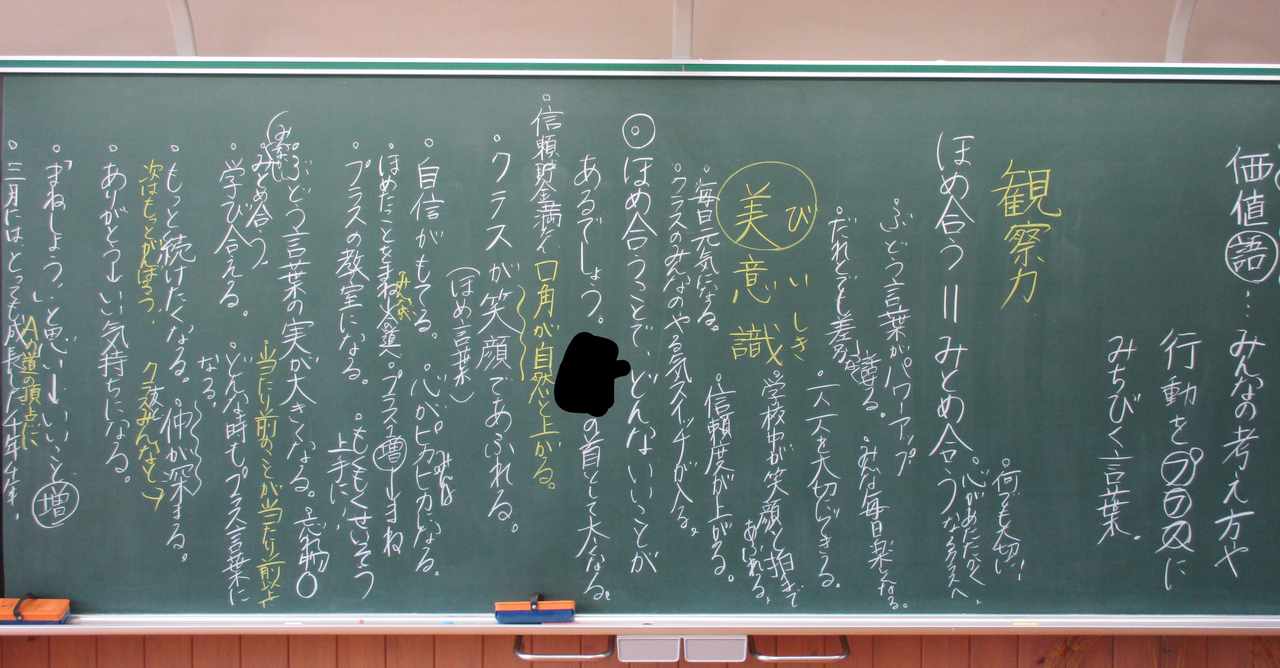 価値語…みんなの考え方や
行動をプラスに
みちびく言葉。
観察力
ほめ合う＝みとめ合う
何でも大切に！
心があたたかく
なるクラスへ。
ぶどう言葉がパワーアップ
みんな毎日楽しくなる。
だれとでも差別なく
話せる。
一人一人を大切にできる。
美意識
びいしき
学校中が笑顔と拍手で
あふれる。
毎日元気になる。
信頼度が上がる。
クラスのみんなのやる気スイッチが入る。
◎ほめ合うことで、どんないいことが
あるでしょう。
の首として大きくなる。
信頼貯金満タン
口角が自然と上がる。
クラスが笑顔であふれる。
（ほめ言葉）
自信がもてる。
心がピカピカになる。
ほめたことをまねして
プラスの教室になる。
もくもくせいそう
上手に
ぶどう言葉の実が大きくなる。
忘れ物〇
みとめ合う
当たり前のことが当たり前以上
学び合える。
どんな時もプラス言葉に
なる。
もっと続けたくなる。
仲が深まる。
次はもっとがんばろう。
クラスみんなと
ありがとう
いい気持ちになる。
「まねしよう。」と思い
いいこと増
Aの道の頂点に
三月にはとっても成長